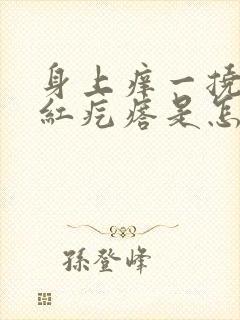 身上痒一挠
红疙瘩是怎
孫登峰